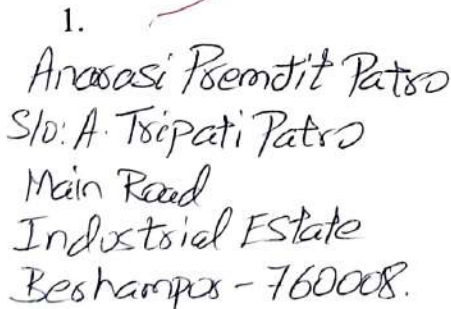 1.
Anarasi Premjit Patro
S/o: A. Tripati Patro
Main Road
Industrial Estate
Berhampur - 760008.